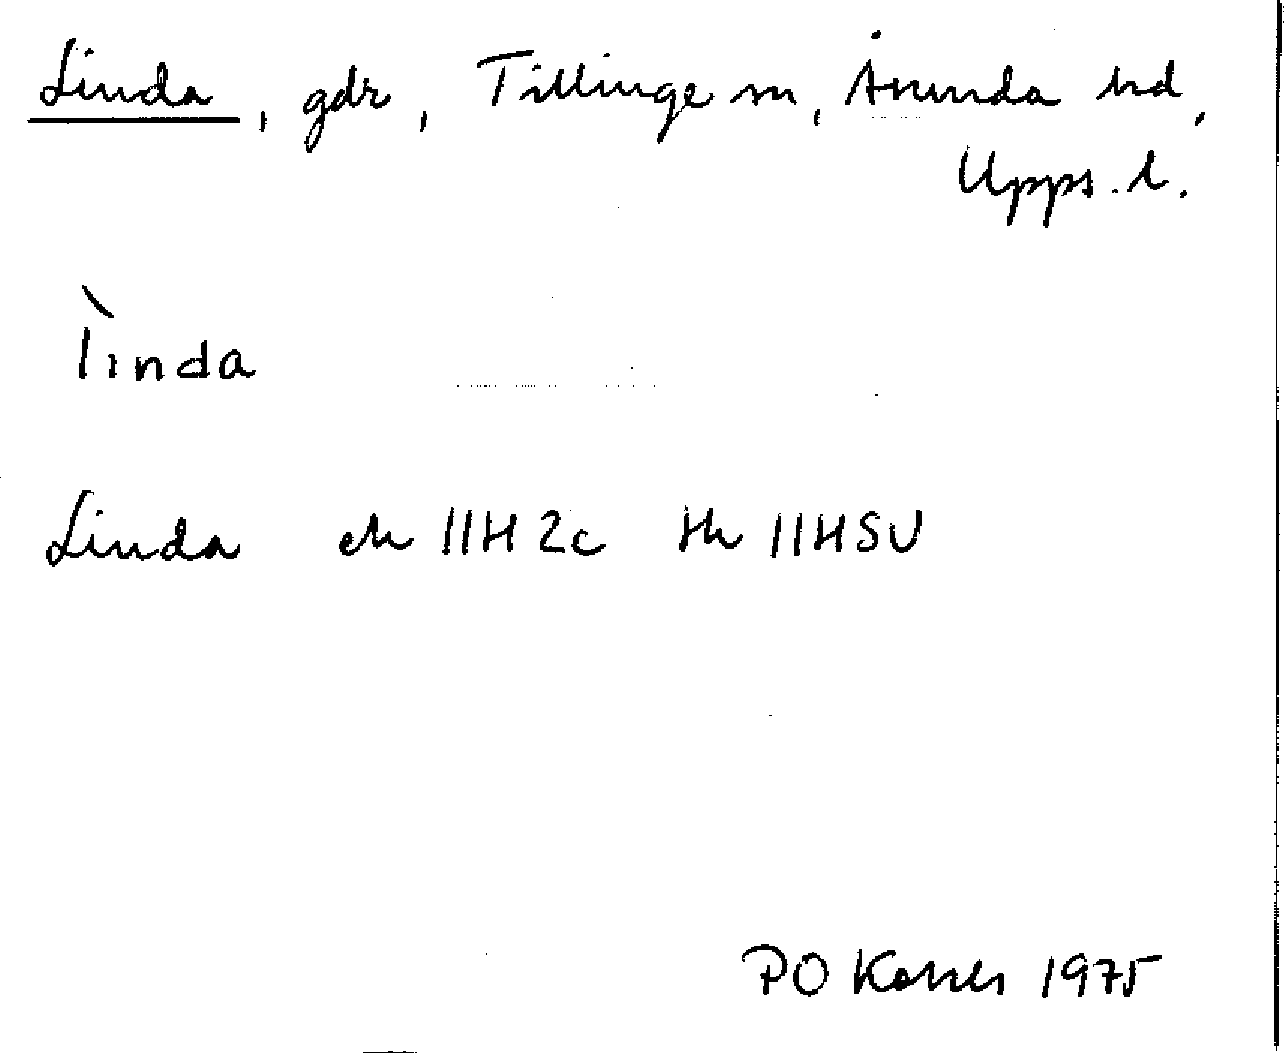 Linda, gdr, Tillinge sn, Åsunda hd,
Upps. l.
lìnda
Linda ek 11H 2c tk 11HSV
PO 1975